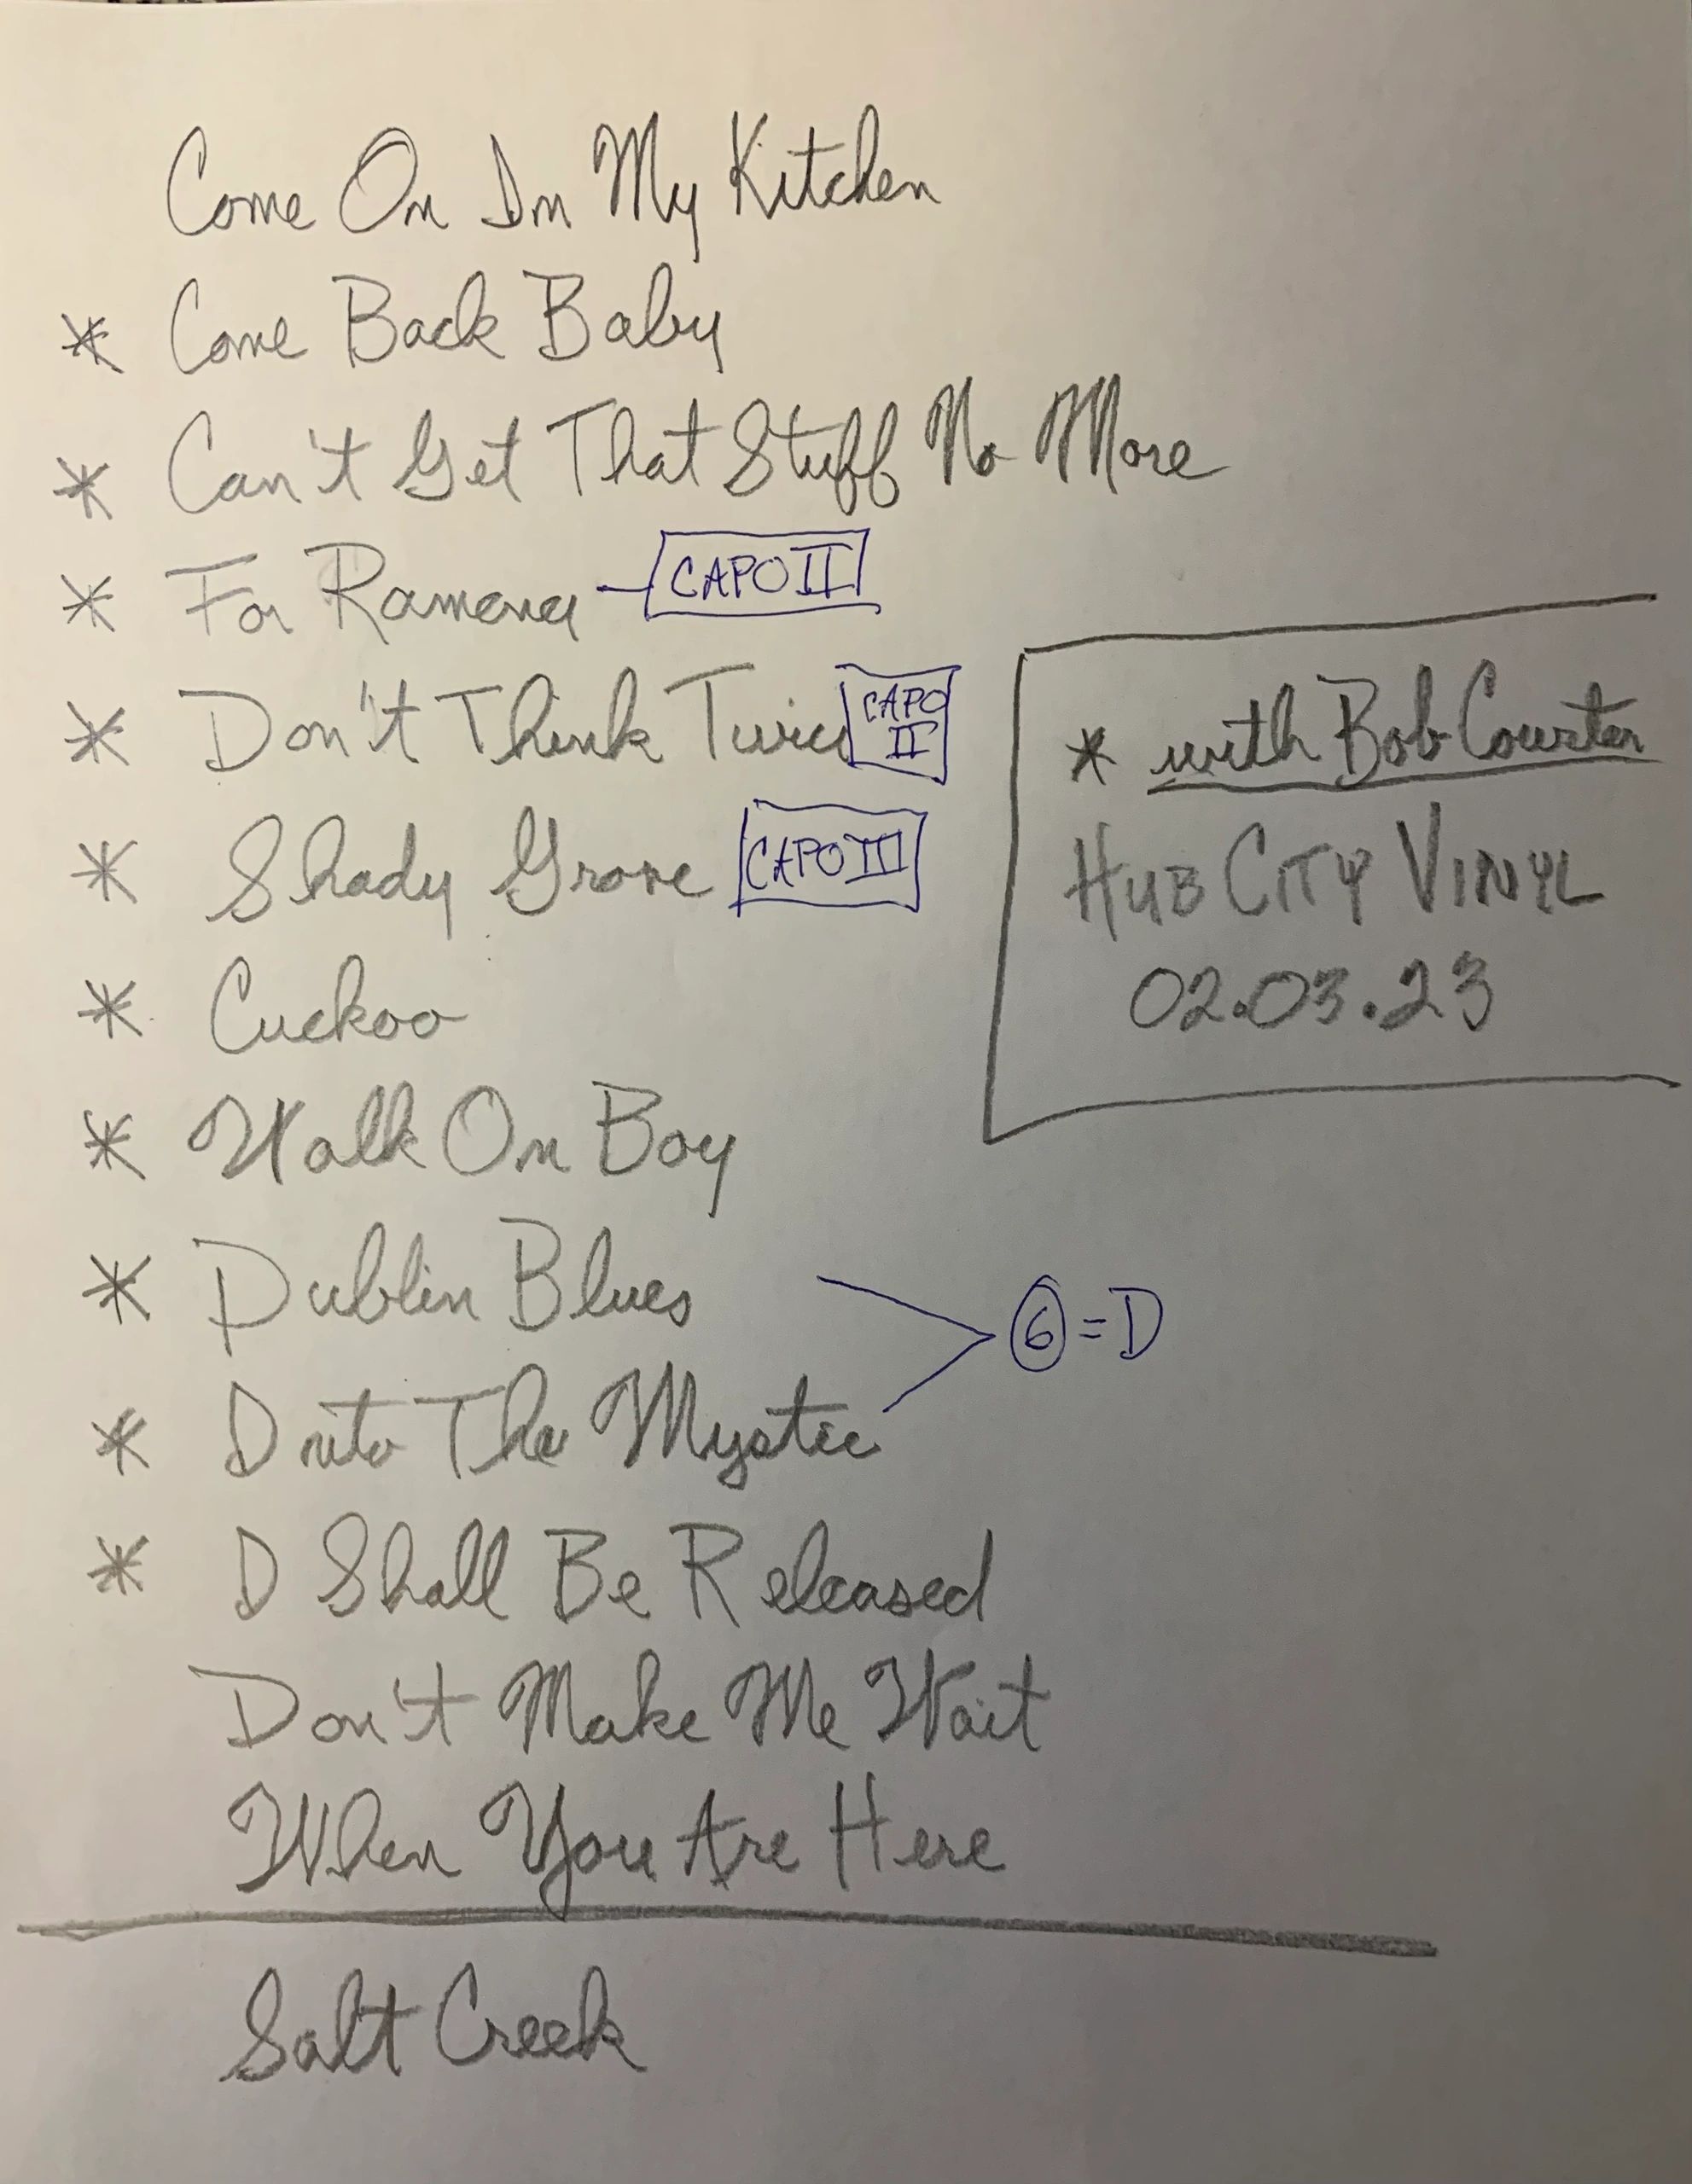 Come On In My Kitchen
* Come Back Baby
* Can't Get That Stuff No More
* For Ramona CAPO II
* Don't Think Twice CAPO II
* Shady Grove CAPO III
* with Bob Courter
HUB CITY VINYL
02.03.23
* Cuckoo
* Walk On Boy
* Dublin Blues
* Into The Mystic
6 = D
* I Shall Be Released
Don't Make Me Wait
When You Are Here
Salt Creek